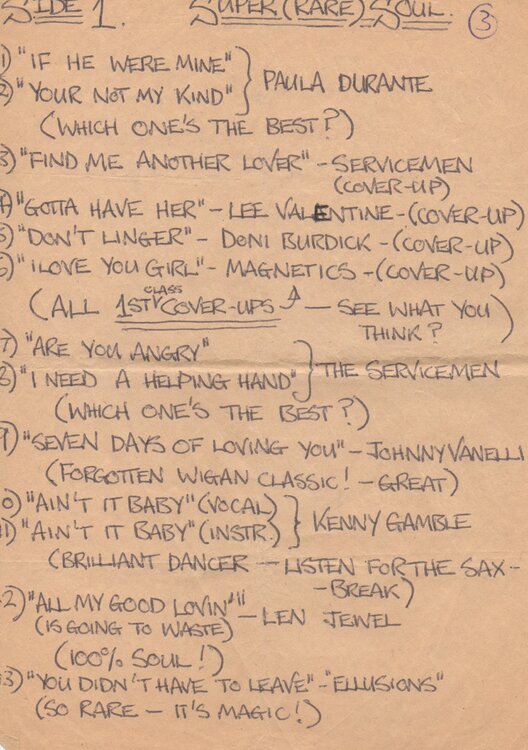 SIDE 1. SUPER (RARE) SOUL. 3
1) "IF HE WERE MINE"
2) "YOUR NOT MY KIND" } PAULA DURANTE
(WHICH ONE'S THE BEST?)
3) "FIND ME ANOTHER LOVER" - SERVICEMEN
(COVER-UP)
4) "GOTTA HAVE HER" - LEE VALENTINE - (COVER-UP)
5) "DON'T LINGER" - DONI BURDICK - (COVER-UP)
6) "I LOVE YOU GIRL" - MAGNETICS - (COVER-UP)
(ALL 1ST CLASS COVER-UPS ↑ — SEE WHAT YOU
THINK?)
7) "ARE YOU ANGRY"
8) "I NEED A HELPING HAND" } THE SERVICEMEN
(WHICH ONE'S THE BEST?)
9) "SEVEN DAYS OF LOVING YOU" - JOHNNY VANELLI
(FORGOTTEN WIGAN CLASSIC! - GREAT)
10) "AIN'T IT BABY" (VOCAL)
11) "AIN'T IT BABY" (INSTR.) } KENNY GAMBLE
(BRILLIANT DANCER — LISTEN FOR THE SAX-
-BREAK)
12) "ALL MY GOOD LOVIN'"
(IS GOING TO WASTE) - LEN JEWEL
(100% SOUL!)
13) "YOU DIDN'T HAVE TO LEAVE" - "ELLUSIONS"
(SO RARE - IT'S MAGIC!)